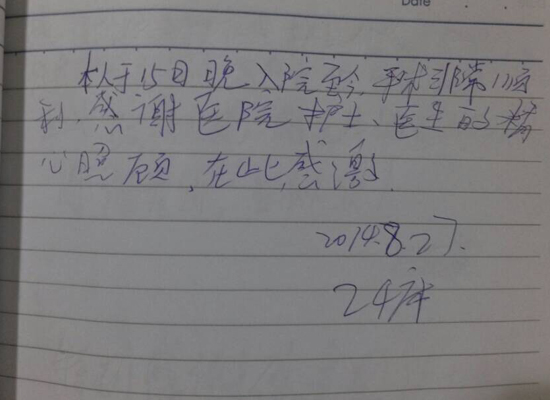 Date
本人于15日晚入院至今,手术非常顺
利,感谢医院护士、医生的精
心照顾,在此感谢.
2014.8.27.
24床